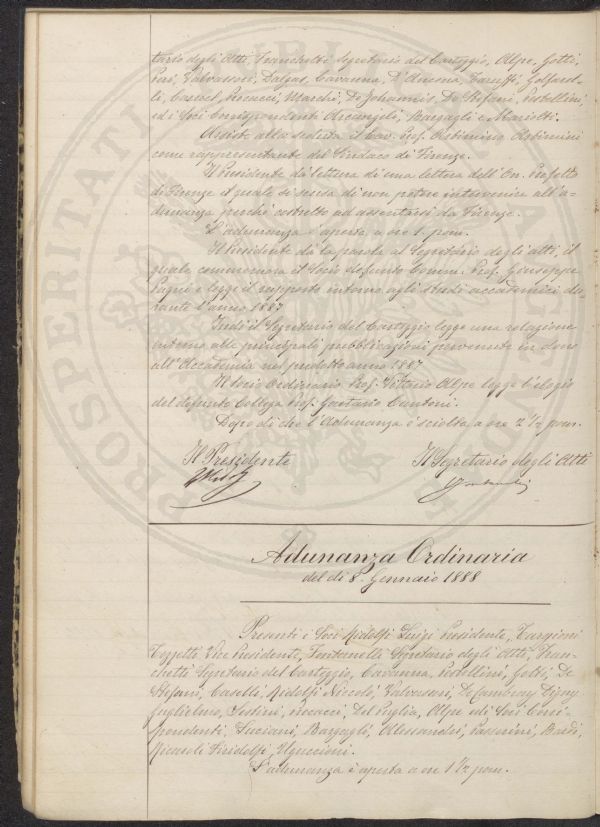 tario degli Atti, Franchetti Segretario del Carteggio, Alpe, Gotti,
Pari, Valvassori, Dalgas, Cavanna, D'Ancona, Taruffi, Golfarel-
li, Caruel, Procacci, Marchi, De Johannis, De Stefani, Pestellini,
ed i Soci Corrispondenti Arcangeli, Bargagli e Mariotti.
Assiste alla seduta il Cav. Prof. Arbimino Arbimini
come rappresentante del Sindaco di Firenze.
Il Presidente dà lettura di una lettera dell'On. Prefetto
di Firenze il quale si scusa di non potere intervenire all'a-
dunanza perchè costretto ad assentarsi da Firenze.
L'adunanza è aperta a ore 1 pom.
Il Presidente dà la parola al Segretario degli atti, il
quale commemora il Socio defunto Comm. Prof. Giuseppe
e legge il rapporto intorno agli studi accademici du-
rante l'anno 1887
Indi il Segretario del Carteggio legge una relazione
intorno alle principali pubblicazioni pervenute in dono
all'Accademia nel predetto anno 1887
Il Socio Ordinario Prof. Vittorio Alpe legge l'elogio
del defunto Collega Prof. Gaetano Cantoni.
Dopo di che l'Adunanza è sciolta a ore 2 1/2 pom.
Il Presidente Il Segretario degli Atti
Adunanza Ordinaria
del dì 8 Gennaio 1888
Presenti i Soci Ridolfi Luigi Presidente, Targioni
Tozzetti Vice Presidente, Fontanelli Segretario degli Atti, Fran-
chetti Segretario del Carteggio, Cavanna, Pestellini, Gotti, De
Stefani, Caselli, Ridolfi Niccolò, Valvassori, De Cambray Digny
Guglielmo, Procacci, Del Puglia, Alpe ed i Soci Corri-
spondenti Luciani, Bargagli, Alessandri, Passerini, Bardi,
Ricasoli Firidolfi, Uguccioni.
L'adunanza è aperta a ore 1 1/2 pom.
PROSPERITATI PUBLICAE AUGENDAE